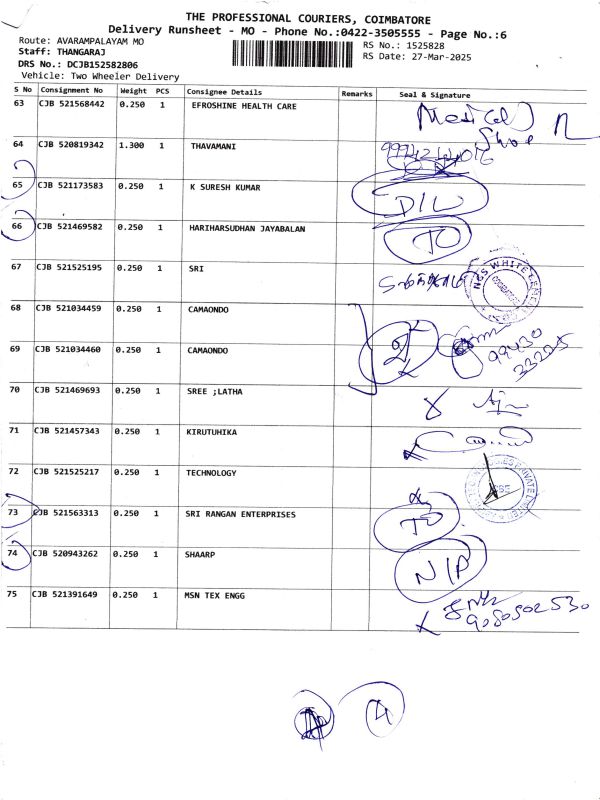 THE PROFESSIONAL COURIERS, COIMBATORE
Delivery Runsheet - MO - Phone No.:0422-3505555 - Page No.:6
Route: AVARAMPALAYAM MO
RS No.: 1525828
Staff: THANGARAJ
RS Date: 27-Mar-2025
DRS No.: DCJB152582806
Vehicle: Two Wheeler Delivery
S No Consignment No Weight PCS Consignee Details Remarks Seal & Signature
63 CJB 521568442 0.250 1 EFROSHINE HEALTH CARE Medical
Shoe
64 CJB 520819342 1.300 1 THAVAMANI
65 CJB 521173583 0.250 1 K SURESH KUMAR D/L
66 CJB 521469582 0.250 1 HARIHARSUDHAN JAYABALAN TO
67 CJB 521525195 0.250 1 SRI
NGS WHITE
68 CJB 521034459 0.250 1 CAMAONDO
99430
33205
69 CJB 521034460 0.250 1 CAMAONDO
70 CJB 521469693 0.250 1 SREE ;LATHA
71 CJB 521457343 0.250 1 KIRUTUHIKA
72 CJB 521525217 0.250 1 TECHNOLOGY
73 CJB 521563313 0.250 1 SRI RANGAN ENTERPRISES TO
74 CJB 520943262 0.250 1 SHAARP N/P
75 CJB 521391649 0.250 1 MSN TEX ENGG
9080502530
4